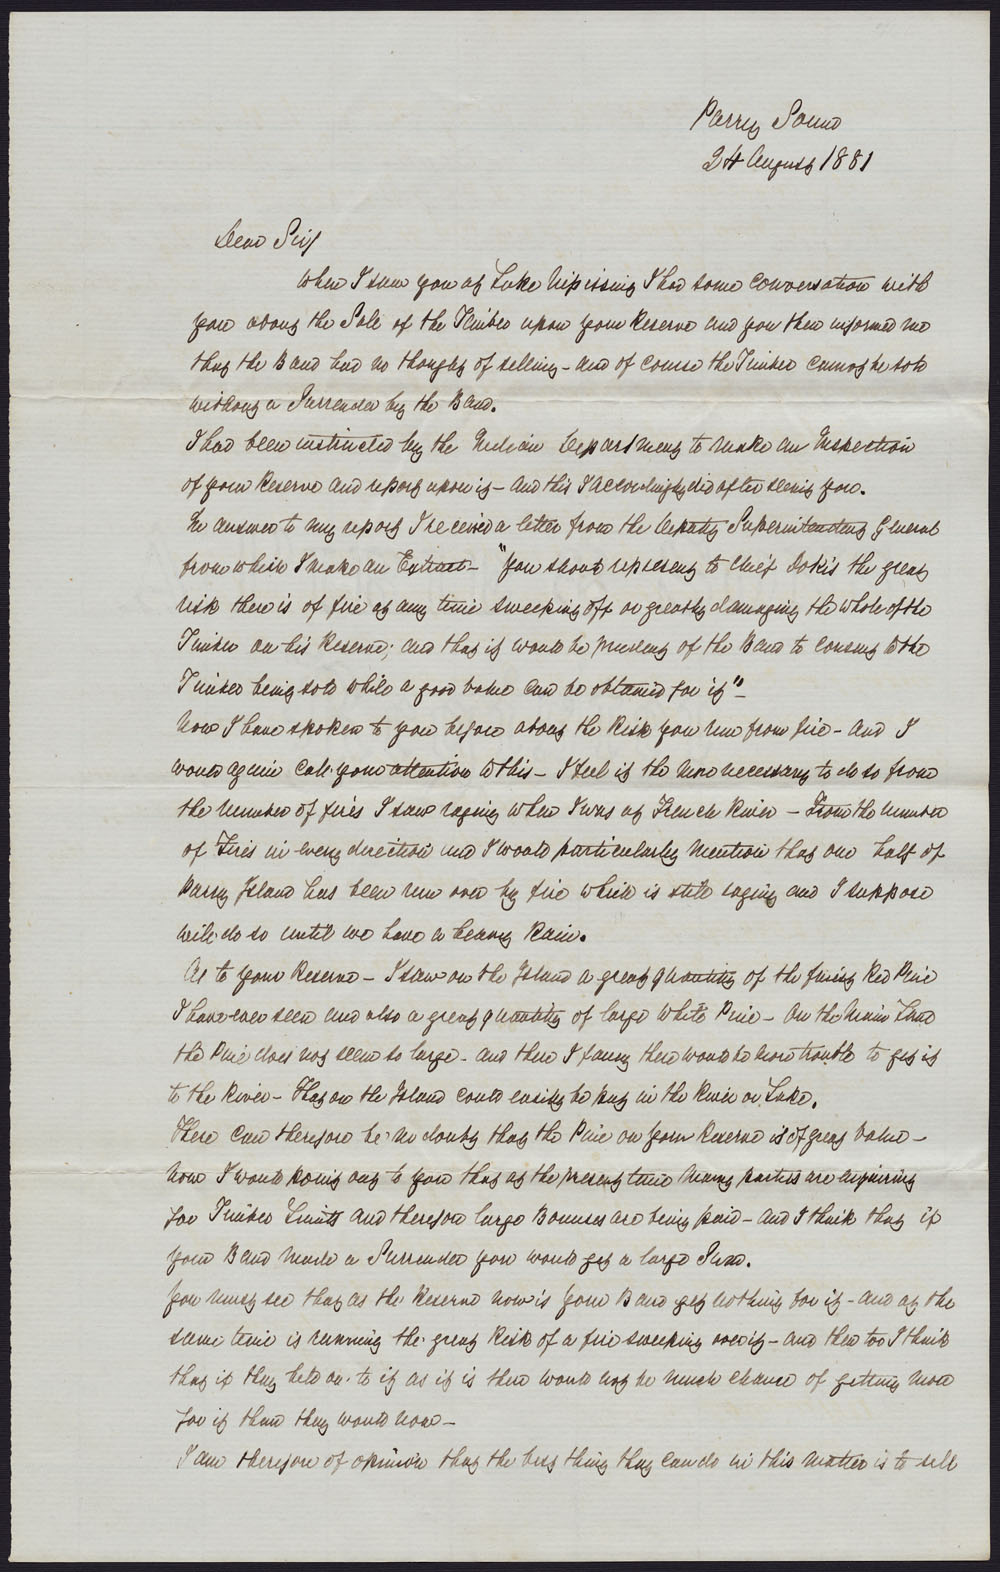 Parry Sound
24 August 1881
Dear Sir/
When I saw you at Lake Nipissing I had some conversation with
you about the Sale of the Timber upon your Reserve and you then informed me
that the Band had no thought of selling - and of course the Timber cannot be sold
without a Surrender by the Band.
I had been instructed by the Indian Department to make an Inspection
of your Reserve and report upon it - and this I accordingly did after seeing you.
In answer to my report I received a letter from the Deputy Superintendent General
from which I make an Extract - "You should represent to Chief Dokis the great
risk there is of fire at any time sweeping off or greatly damaging the whole of the
Timber on his Reserve; and that it would be prudent of the Band to consent to the
Timber being sold while a good value can be obtained for it" -
Now I have spoken to you before about the Risk you run from fire - and I
would again call your attention to this - I feel it the more necessary to do so from
the number of fires I saw raging when I was at French River - From the number
of Fires in every direction and I would particularly mention that one half of
Parry Island has been run over by fire which is still raging and I suppose
will do so until we have a heavy Rain.
As to your Reserve - I saw on the Island a great quantity of the finest Red Pine
I have ever seen and also a great quantity of large White Pine - On the Main Land
the Pine does not seem so large - and then I fancy there would be more trouble to get it
to the River - That on the Island could easily be put in the River or Lake.
There can therefore be no doubt that the Pine on your Reserve is of great value -
Now I would point out to you that at the present time many parties are enquiring
for Timber Limits and therefore large Bonuses are being paid - and I think that if
your Band made a Surrender you would get a large Sum.
You must see that as the Reserve now is your Band get nothing for it - and at the
same time is running the great Risk of a fire sweeping over it - and then too I think
that if they held on to it as it is there would not be much chance of getting more
for it than they would now -
I am therefore of opinion that the best thing they can do in this matter is to sell